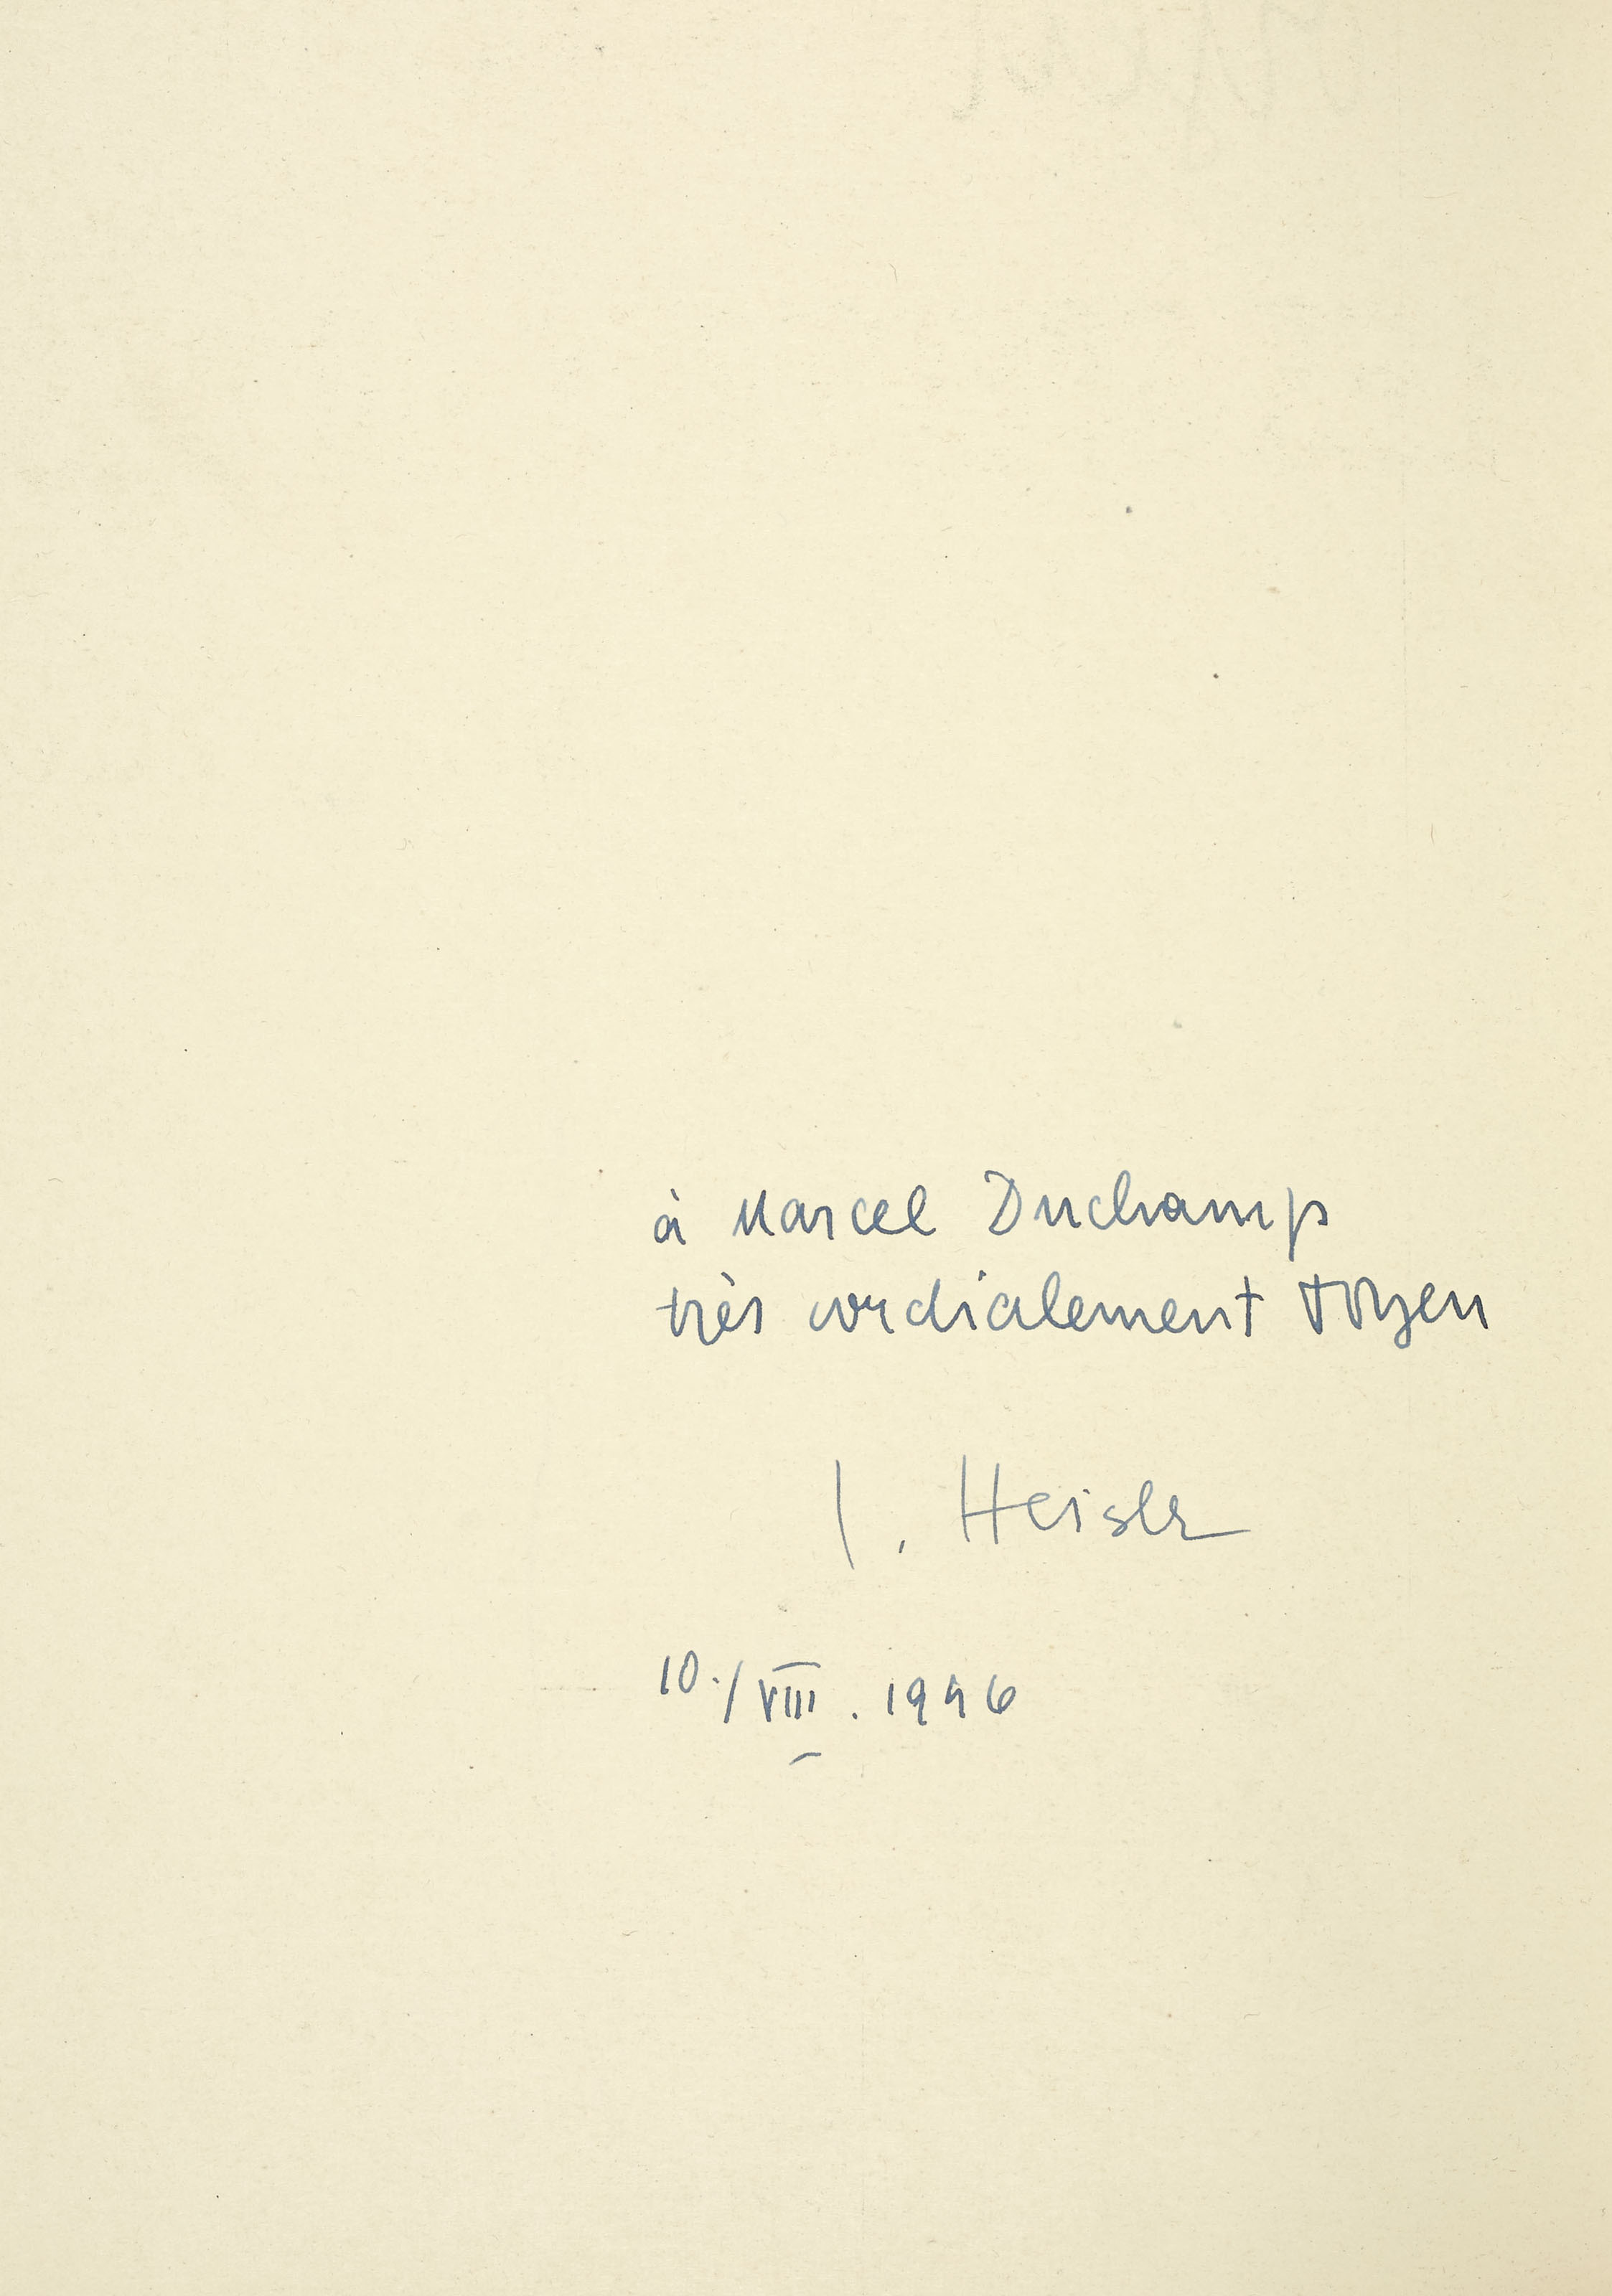 à Marcel Duchamp
très cordialement Toyen
J. Heisler
10./VIII. 1946